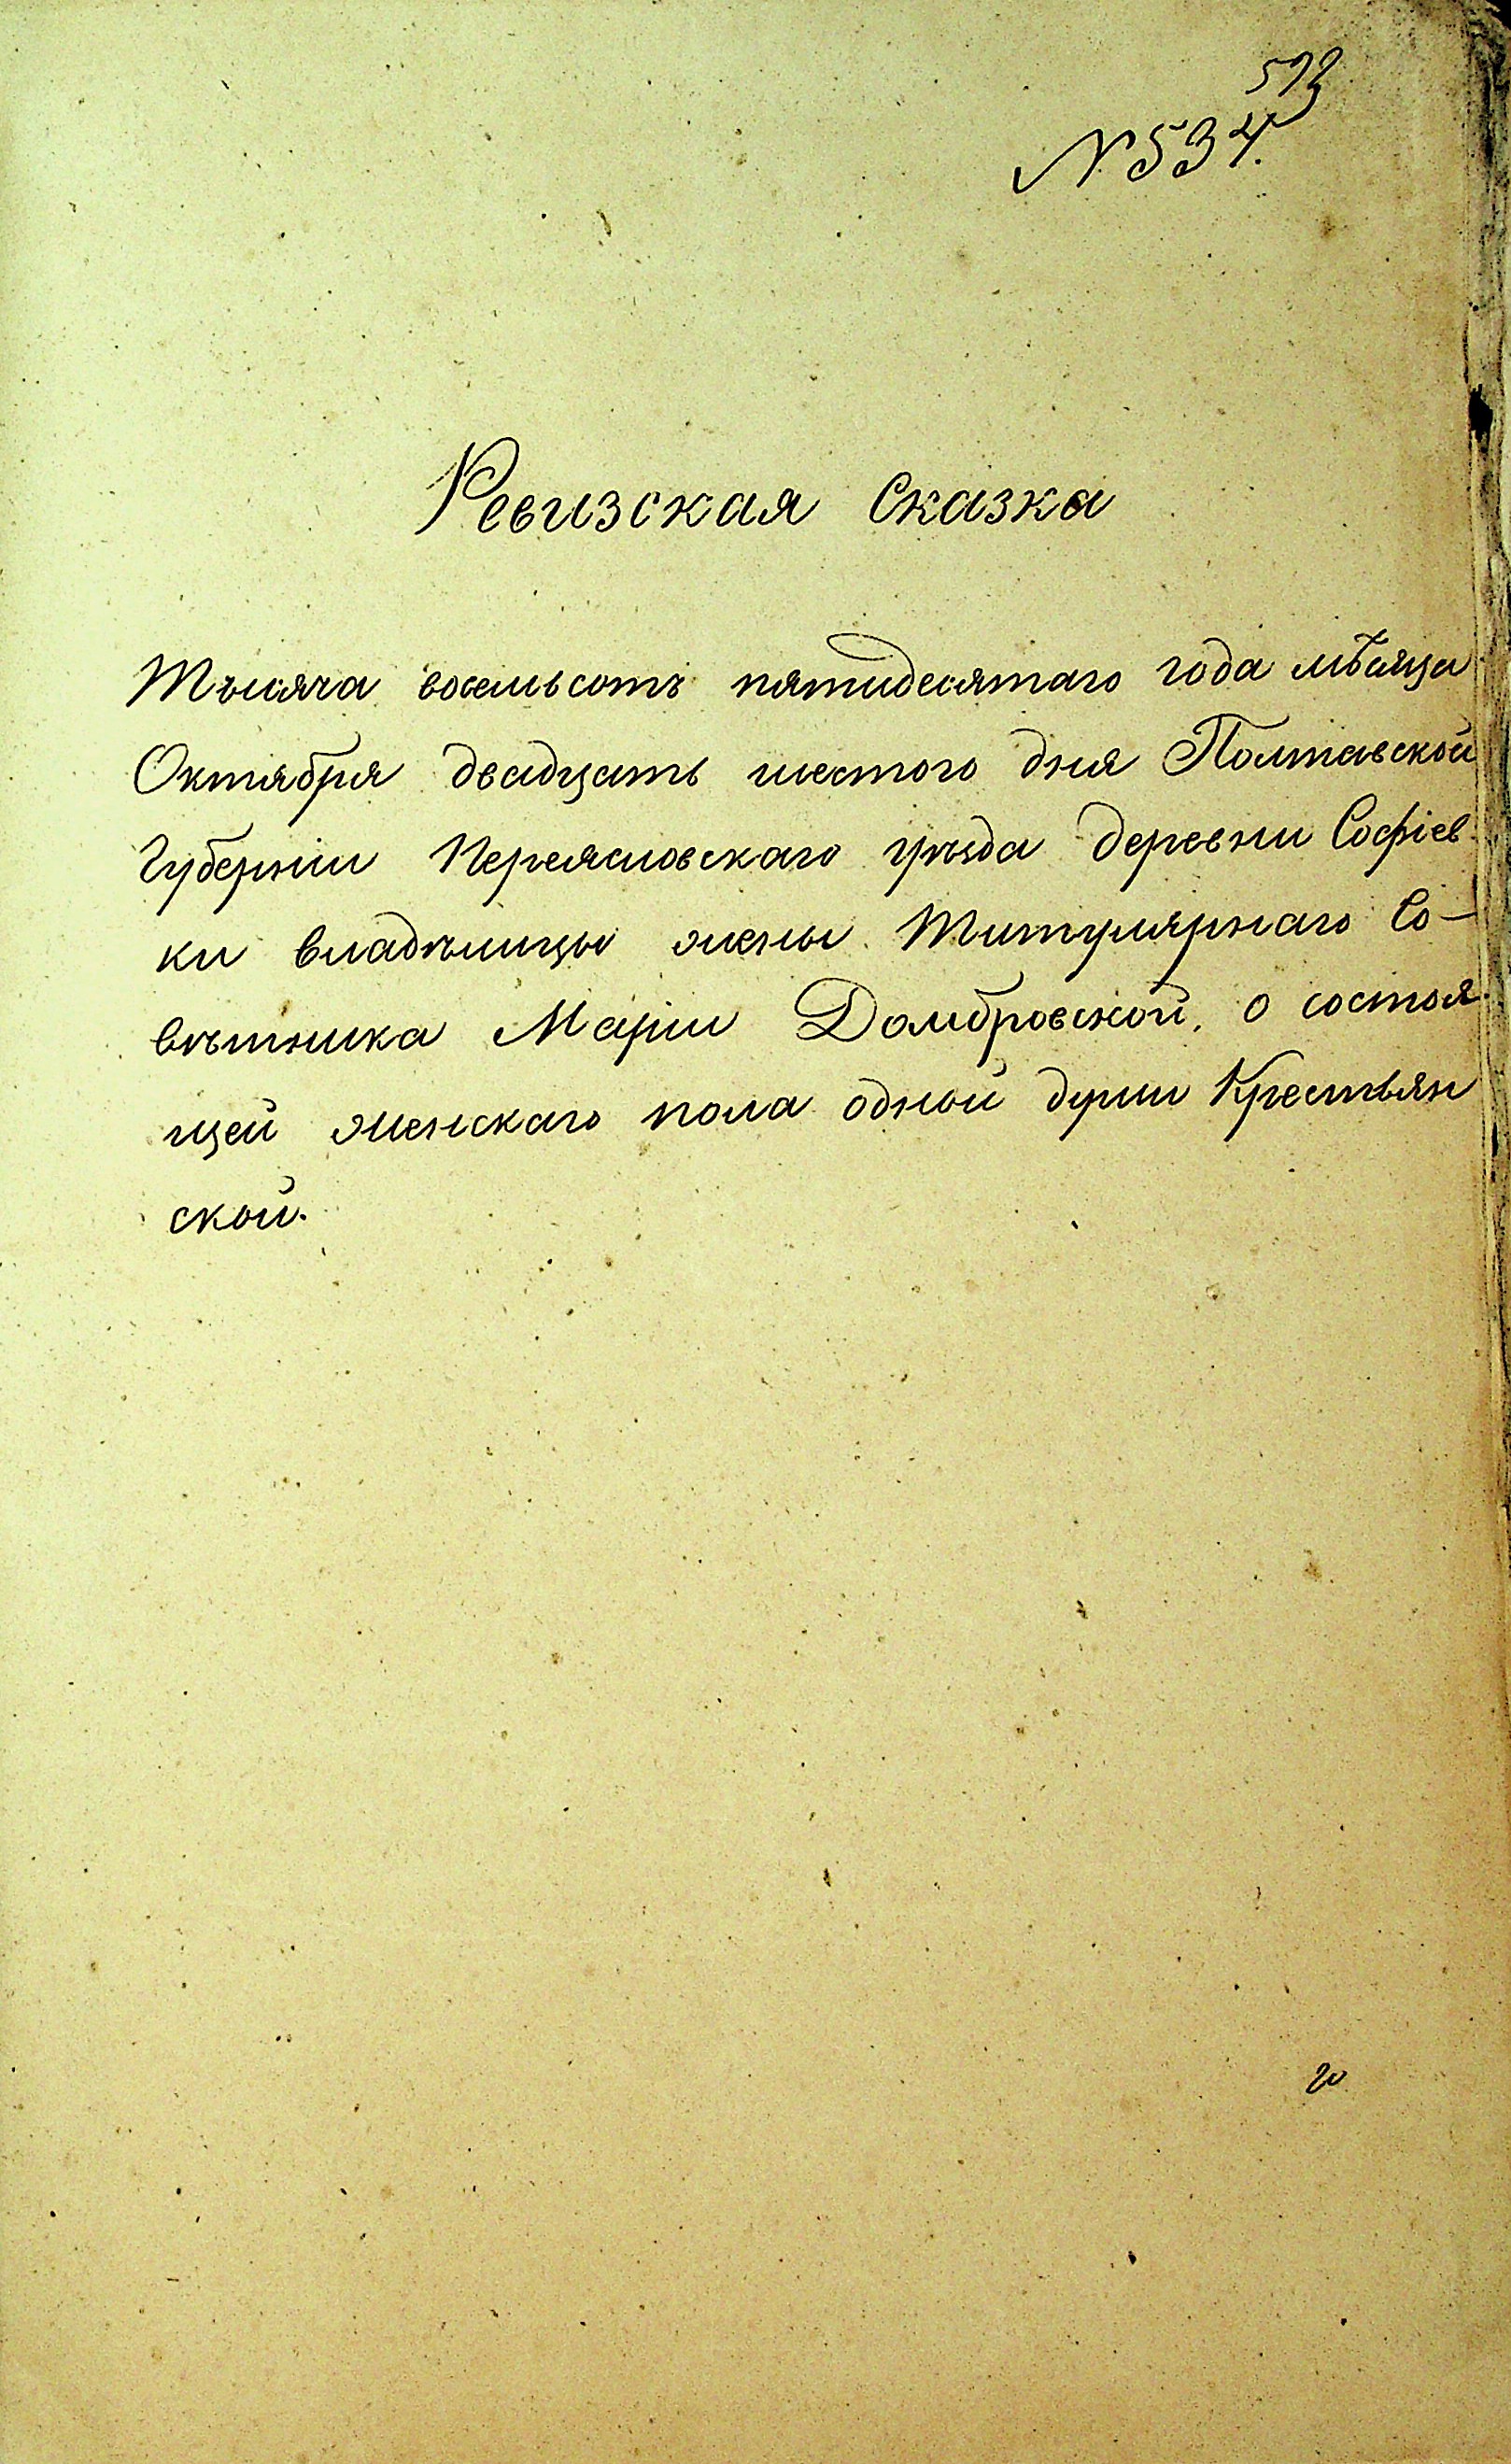 593
№ 534.
Ревизская Сказка
Тысяча восемьсотъ пятидесятаго года мѣсяца
Октября двадцать шестого дня Полтавской
Губерніи Переясловскаго уѣзда деревни Софіев-
ки владѣлицы жены Титулярнаго Со-
вѣтника Маріи Домбровской, о состоя-
щей женскаго пола одной души Крестьян
ской.